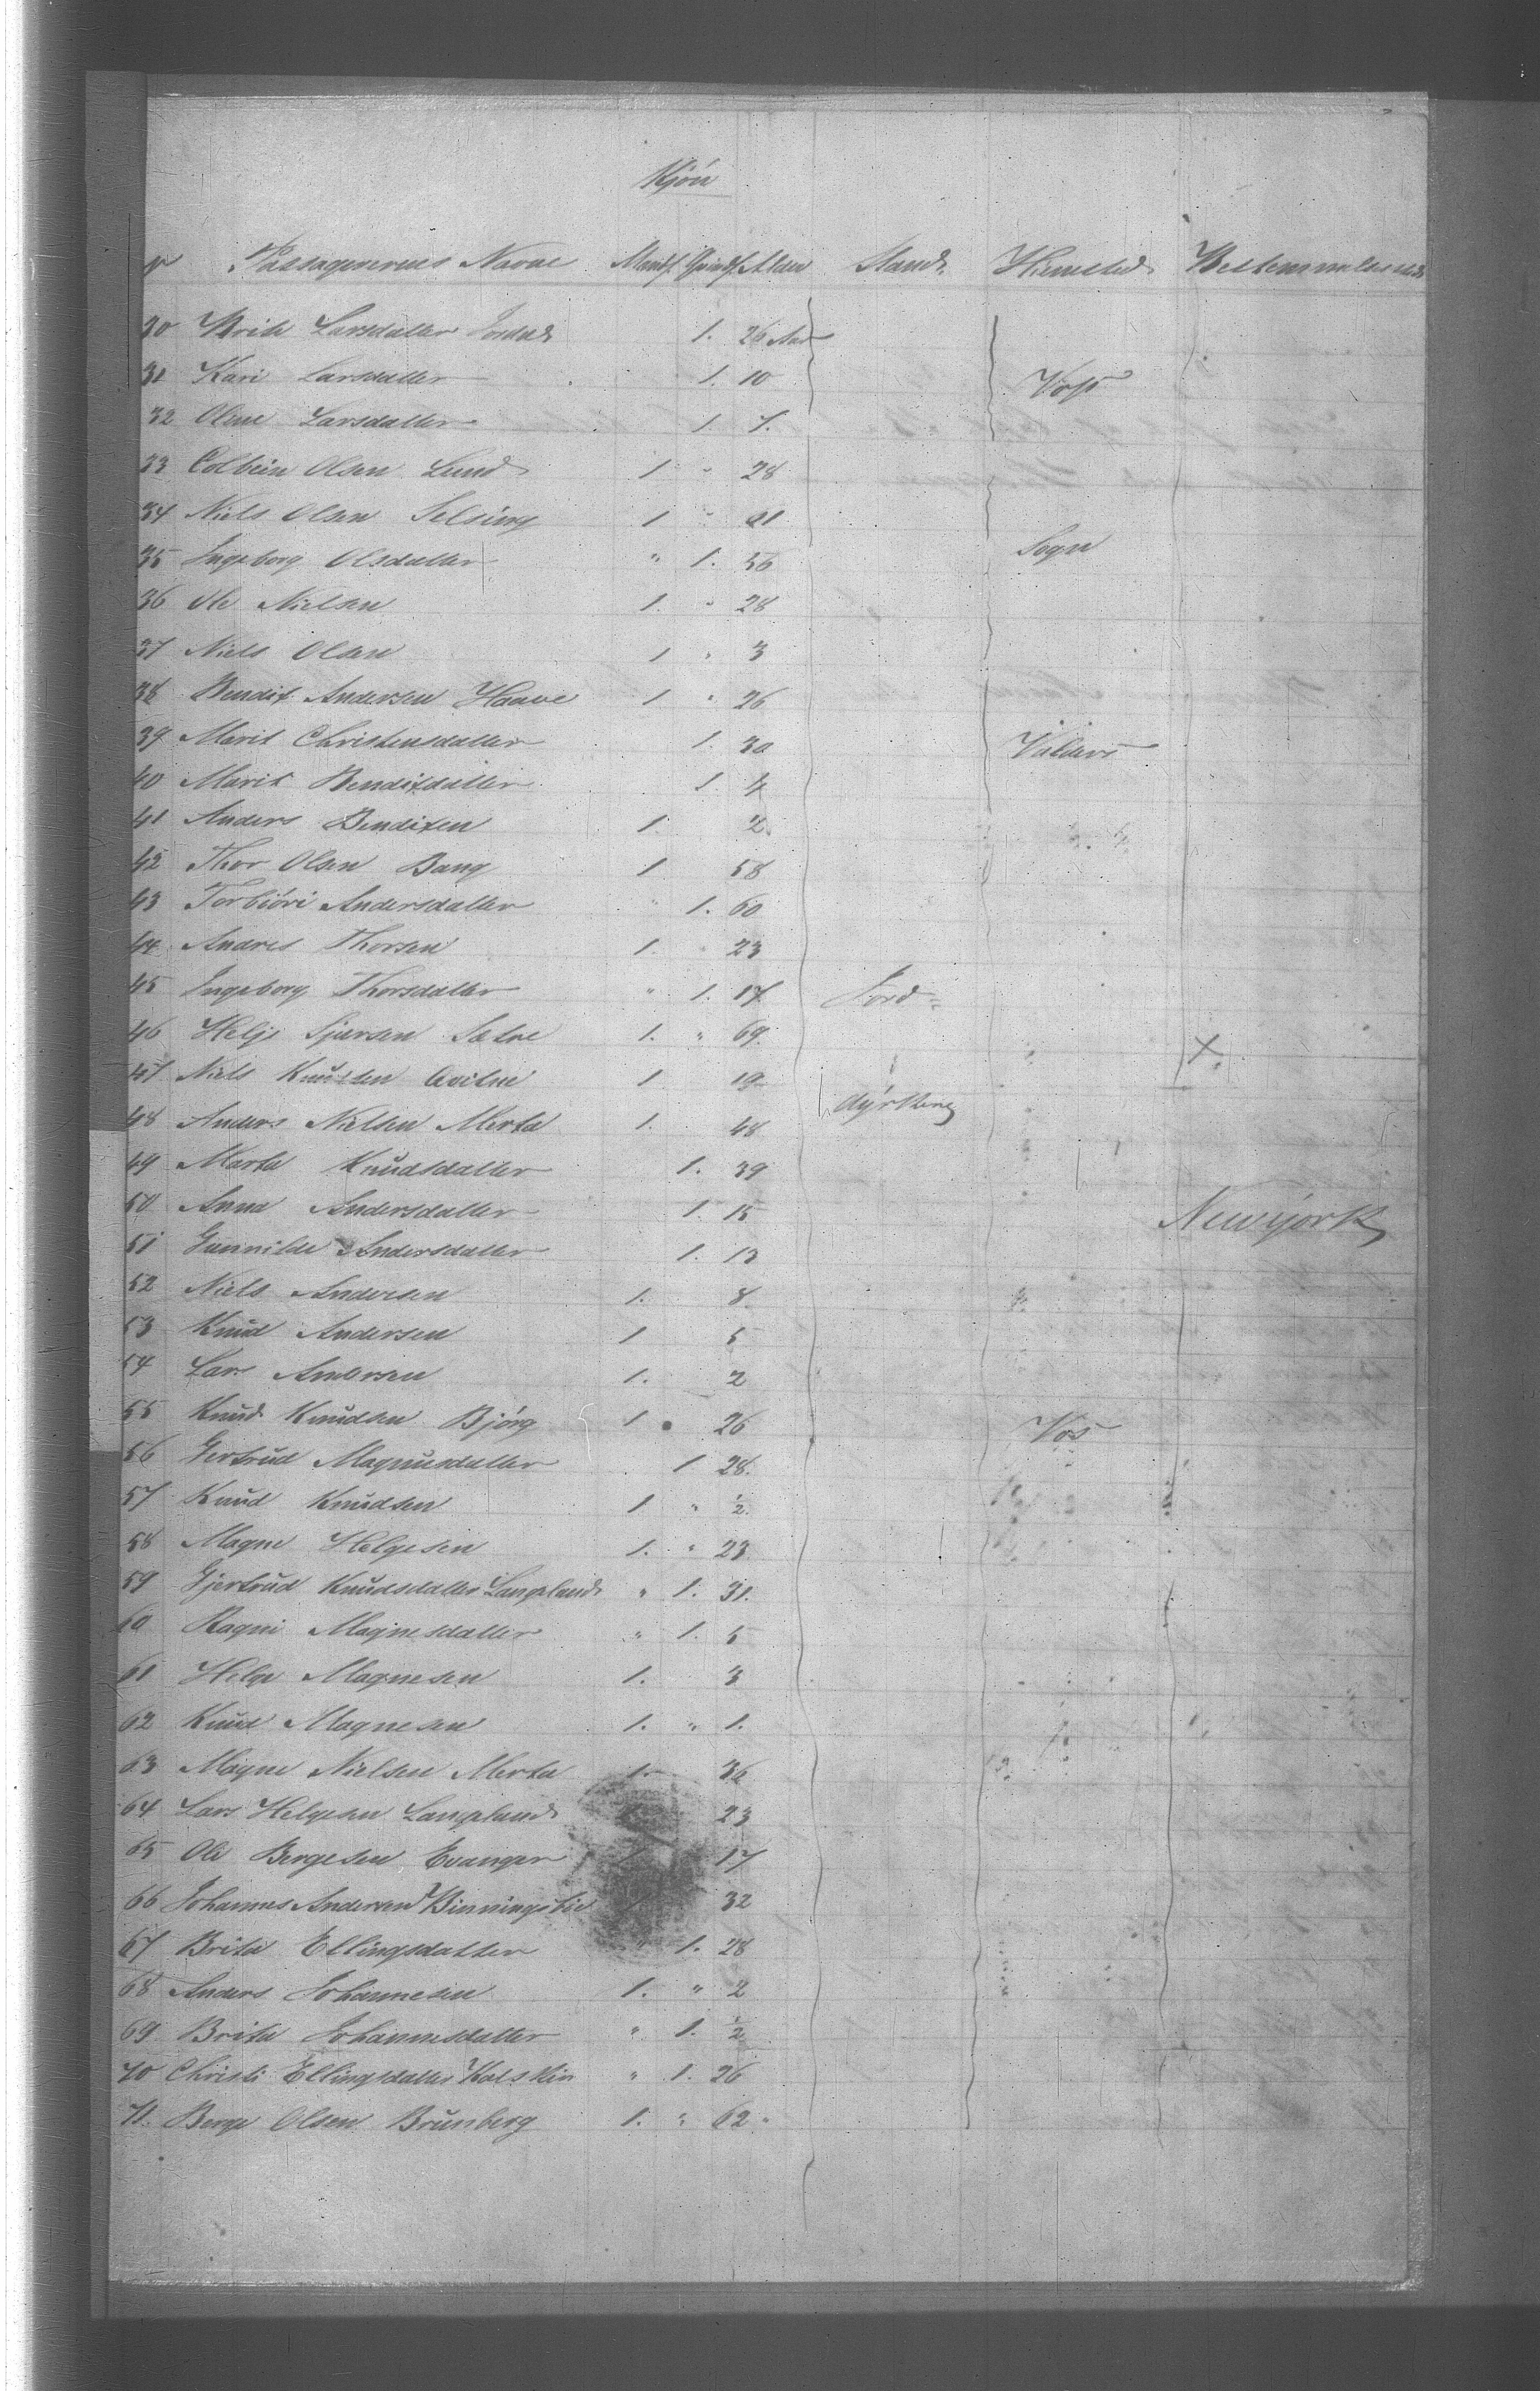 Kjön
N Passagerernes Navne Mandf. Qvindf. Alder Stand. Hiemsted Bestemmelsessted
30 Brite Larsdatter 1. 26 Aar
31 Kari Larsdatter 1. 10 Voss
32 Oline Larsdatter 1. 7.
33 Colbein Olsen Lund 1 " 28
34 Niels Olsen Selsing 1 " 21
35 Ingeborg Olsdatter " 1. 56 Sogn
36 Ole Nielsen 1. " 28
37 Niels Olsen 1 " 3
38 Bendix Andersen Haave 1 " 26
39 Marit Christensdatter 1. 30 Valders
40 Marit Bendixdatter 1. 4
41 Anders Bendixen 1. 2
42 Thor Olsen Bang 1 58
43 Torbiöri Andersdatter " 1. 60
44 Andres Thorsen 1. " 23
45 Ingeborg Thorsdatter " 1. 17 Jord=
46 Helje Sjursen Sætre 1. " 69. X.
47 Niels Knudsen 1 19
48 Anders Nielsen Merta 1. 48 dyrkere
49 Marta Knudsdatter 1. 39
50 Anna Andersdatter 1. 15 Newyork
51 Gunnilde Andersdatter 1. 13
52 Niels Andersen 1. 8
53 Knud Andersen 1 5
54 Lars Andersen 1. 2
55 Knud Knudsen Björg 1 26 Vos
56 Gertrud Magnusdatter 1 28.
57 Knud Knudsen 1 " ½
58 Magne Helgesen 1. " 23
59 Gjertrud Knudsdatter Langeland " 1. 31.
60 Ragni Magnesdatter " 1. 5
61 Helge Magnesen 1. 3
62 Knud Magnesen 1. " 1.
63 Magne Nielsen Merta 1. 36
64 Lars Helgesen Langeland 23
65 Ole Bergesen Evanger 1 17
66 Johannes Andersen 1 32
67 Brita Ellingsdatter " 1. 28
68 Anders Johannesen 1. " 2
69 Brita Johannesdatter " 1. ½
70 Christi Ellingsdatter " 1. 26
71. Berge Olsen Brunberg 1. " 62